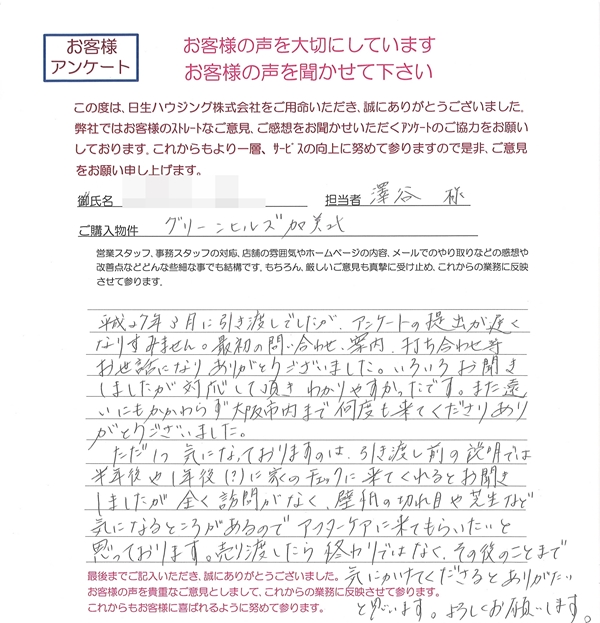 お客様
アンケート
お客様の声を大切にしています
お客様の声を聞かせて下さい
この度は、日生ハウジング株式会社をご用命いただき、誠にありがとうございました。
弊社ではお客様のストレートなご意見、ご感想をお聞かせいただくアンケートのご協力をお願い
しております。これからもより一層、サービスの向上に努めて参りますので是非、ご意見
をお願い申し上げます。
御氏名
担当者 澤谷 様
ご購入物件 グリーンヒルズ加美弐
営業スタッフ、事務スタッフの対応、店舗の雰囲気やホームページの内容、メールでのやり取りなどの感想や
改善点などどんな些細な事でも結構です。もちろん、厳しいご意見も真摯に受け止め、これからの業務に反映
させて参ります。
平成27年3月に引き渡しでしたが、アンケートの提出が遅く
なりすみません。最初の問い合わせ、案内、打ち合わせ等
お世話になりありがとうございました。いろいろお聞き
しましたが対応して頂きわかりやすかったです。また遠
いにもかかわらず大阪市内まで何度も来てくださりあり
がとうございました。
ただ1つ気になっておりますのは、引き渡し前の説明では
半年後や1年後(?)に家のチェックに来てくれるとお聞き
しましたが全く訪問がなく、壁紙の切れ目や芝生など
気になるところがあるのでアフターケアに来てもらいたいと
思っております。売り渡したら終わりではなく、その後のことまで
気にかけてくださるとありがたい
と思います。よろしくお願いします。
最後までご記入いただき、誠にありがとうございました。
お客様の声を貴重なご意見としまして、これからの業務に反映させて参ります。
これからもお客様に喜ばれるように努めて参ります。